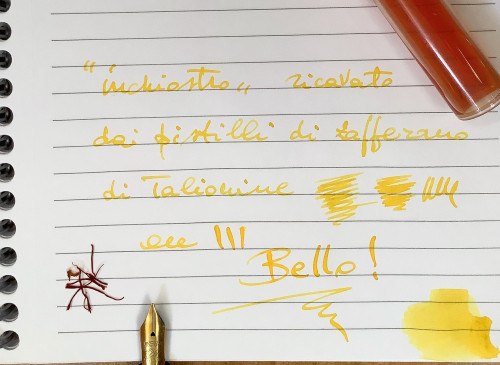 "inchiostro" ricavato
dai pistilli di zafferano
di
Bello!